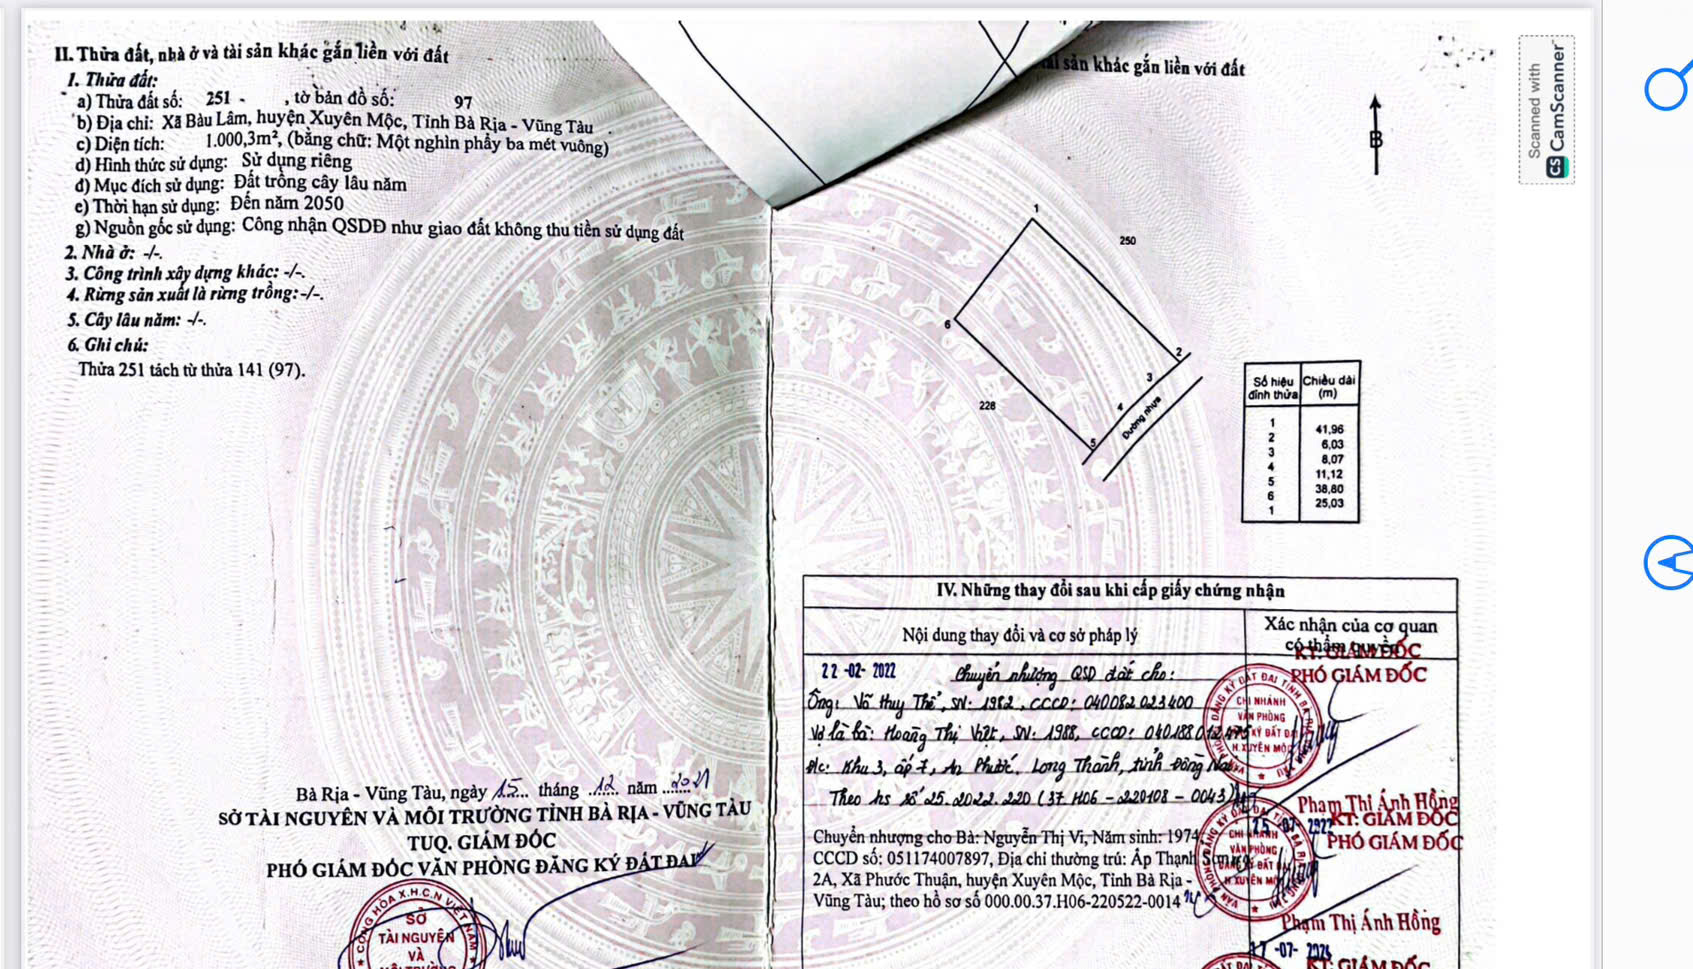 II. Thửa đất, nhà ở và tài sản khác gắn liền với đất
1. Thửa đất:
a) Thửa đất số: 251 - , tờ bản đồ số: 97
b) Địa chỉ: Xã Bàu Lâm, huyện Xuyên Mộc, Tỉnh Bà Rịa - Vũng Tàu
c) Diện tích: 1.000,3m², (bằng chữ: Một nghìn phẩy ba mét vuông)
d) Hình thức sử dụng: Sử dụng riêng
đ) Mục đích sử dụng: Đất trồng cây lâu năm
e) Thời hạn sử dụng: Đến năm 2050
g) Nguồn gốc sử dụng: Công nhận QSDĐ như giao đất không thu tiền sử dụng đất
2. Nhà ở: -/-.
3. Công trình xây dựng khác: -/-.
4. Rừng sản xuất là rừng trồng: -/-.
5. Cây lâu năm: -/-.
6. Ghi chú:
Thửa 251 tách từ thửa 141 (97).
Bà Rịa - Vũng Tàu, ngày 15 tháng 12 năm 2021
SỞ TÀI NGUYÊN VÀ MÔI TRƯỜNG TỈNH BÀ RỊA - VŨNG TÀU
TUQ. GIÁM ĐỐC
PHÓ GIÁM ĐỐC VĂN PHÒNG ĐĂNG KÝ ĐẤT ĐAI
CỘNG HÒA X.H.C.N VIỆT NAM
SỞ
TÀI NGUYÊN
VÀ
tài sản khác gắn liền với đất
B
1
250
6
2
3
228
4
Đường nhựa
5
Số hiệu đỉnh thửa Chiều dài (m)
1
41,96
2
6,03
3
8,07
4
11,12
5
38,80
6
25,03
1
IV. Những thay đổi sau khi cấp giấy chứng nhận
Nội dung thay đổi và cơ sở pháp lý
Xác nhận của cơ quan
có thẩm quyền
22 -02- 2022 Chuyển nhượng QSD đất cho:
Ông: Võ Huy Thể, SN: 1982, CCCD: 040082023400
Vợ là bà: Hoàng Thị Việt, SN: 1988, CCCD: 040188012475
Đ/c: Khu 3, ấp 7, An Phước, Long Thành, tỉnh Đồng Nai
Theo hs số 25.2022.220 (37.H06 - 220108 - 0043)
KT. GIÁM ĐỐC
PHÓ GIÁM ĐỐC
CHI NHÁNH
VĂN PHÒNG
ĐĂNG KÝ ĐẤT ĐAI
H. XUYÊN MỘC
Phạm Thị Ánh Hồng
25 -07- 2022
Chuyển nhượng cho Bà: Nguyễn Thị Vi, Năm sinh: 1974
CCCD số: 051174007897, Địa chỉ thường trú: Ấp Thạnh Sơn
2A, Xã Phước Thuận, huyện Xuyên Mộc, Tỉnh Bà Rịa -
Vũng Tàu; theo hồ sơ số 000.00.37.H06-220522-0014
KT. GIÁM ĐỐC
PHÓ GIÁM ĐỐC
CHI NHÁNH
VĂN PHÒNG
ĐĂNG KÝ ĐẤT ĐAI
H. XUYÊN MỘC
Phạm Thị Ánh Hồng
17 -07- 2024
KT. GIÁM ĐỐC
Scanned with
CS CamScanner